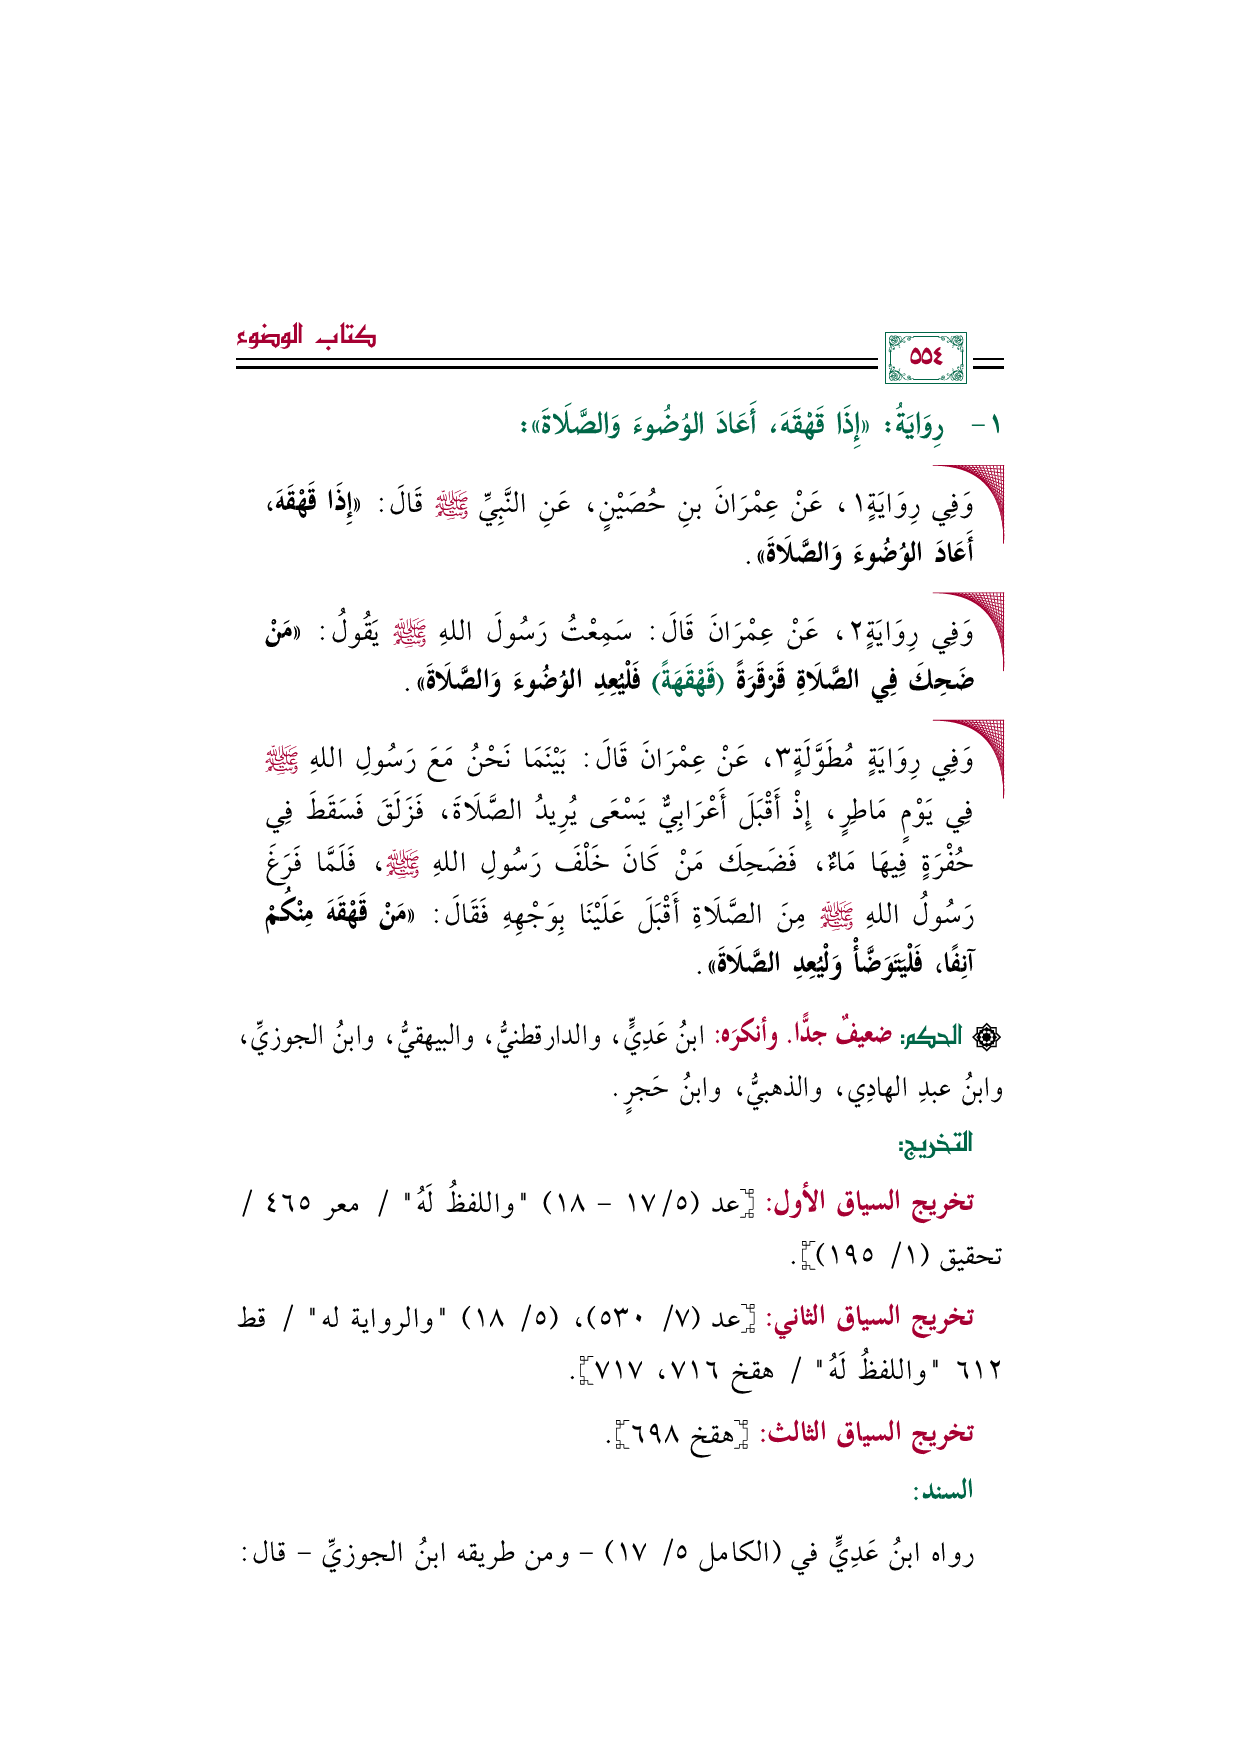 كتاب الوضوء
٥٥٤
١- رِوَايَةُ: «إِذَا قَهْقَهَ، أَعَادَ الوُضُوءَ وَالصَّلَاةَ»:
وَفِي رِوَايَةٍ١، عَنْ عِمْرَانَ بنِ حُصَيْنٍ، عَنِ النَّبِيِّ ﷺ قَالَ: «إِذَا قَهْقَهَ،
أَعَادَ الوُضُوءَ وَالصَّلَاةَ».
وَفِي رِوَايَةٍ٢، عَنْ عِمْرَانَ قَالَ: سَمِعْتُ رَسُولَ اللهِ ﷺ يَقُولُ: «مَنْ
ضَحِكَ فِي الصَّلَاةِ قَرْقَرَةً (قَهْقَهَةً) فَلْيُعِدِ الوُضُوءَ وَالصَّلَاةَ».
وَفِي رِوَايَةٍ مُطَوَّلَةٍ٣، عَنْ عِمْرَانَ قَالَ: بَيْنَمَا نَحْنُ مَعَ رَسُولِ اللهِ ﷺ
فِي يَوْمٍ مَاطِرٍ، إِذْ أَقْبَلَ أَعْرَابِيٌّ يَسْعَى يُرِيدُ الصَّلَاةَ، فَزَلَقَ فَسَقَطَ فِي
حُفْرَةٍ فِيهَا مَاءٌ، فَضَحِكَ مَنْ كَانَ خَلْفَ رَسُولِ اللهِ ﷺ، فَلَمَّا فَرَغَ
رَسُولُ اللهِ ﷺ مِنَ الصَّلَاةِ أَقْبَلَ عَلَيْنَا بِوَجْهِهِ فَقَالَ: «مَنْ قَهْقَهَ مِنْكُمْ
آنِفًا، فَلْيَتَوَضَّأْ وَلْيُعِدِ الصَّلَاةَ».
الحكم: ضعيفٌ جدًّا. وأنكرَه: ابنُ عَدِيٍّ، والدارقطنيُّ، والبيهقيُّ، وابنُ الجوزيِّ،
وابنُ عبدِ الهادِي، والذهبيُّ، وابنُ حَجرٍ.
التخريج:
تخريج السياق الأول: [عد (٥/ ١٧ - ١٨) "واللفظُ لَهُ" / معر ٤٦٥ /
تحقيق (١/ ١٩٥)].
تخريج السياق الثاني: [عد (٧/ ٥٣٠)، (٥/ ١٨) "والرواية له" / قط
٦١٢ "واللفظُ لَهُ" / هقخ ٧١٦، ٧١٧].
تخريج السياق الثالث: [هقخ ٦٩٨].
السند:
رواه ابنُ عَدِيٍّ في (الكامل ٥/ ١٧) - ومن طريقه ابنُ الجوزيِّ - قال: